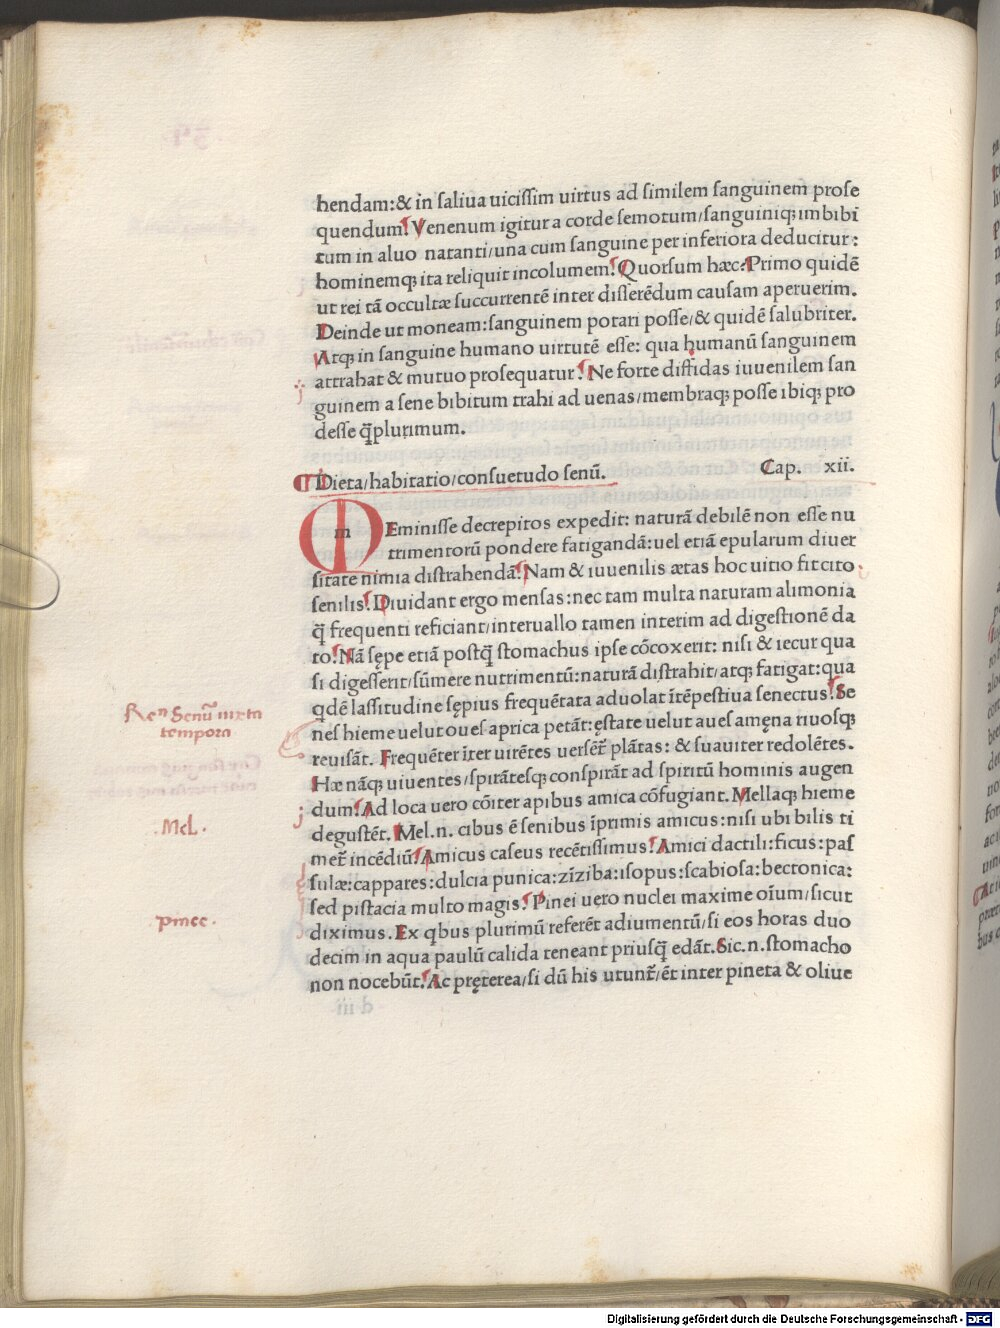 hendam:& in ſaliua uiciſſim uirtus ad ſimilem ſanguinem proſe
quendum. Venenum igitur a corde ſemotum/ſanguiniqꝫ imbibi
tum in aluo natanti/una cum ſanguine per inferiora deducitur:
hominemqꝫ ita reliquit incolumem. Quorſum hæc: Primo quidē
ut rei tā occultæ ſuccurrentē inter diſſerēdum cauſam aperuerim.
Deinde ut moneam:ſanguinem potari poſſe/& quidē ſalubriter.
Atqꝫ in ſanguine humano uirtutē eſſe: qua humanū ſanguinem
attrahat & mutuo proſequatur. Ne forte diffidas iuuenilem ſan
guinem a ſene bibitum trahi ad uenas/membraqꝫ poſſe ibiqꝫ pro
deſſe q̄plurimum.
Dieta/habitatio/conſuetudo ſenū. Cap. xii.
m EMiniſſe decrepitos expedit: naturā debilē non eſſe nu
trimentorū pondere fatigandā:uel etiā epularum diuer
ſitate nimia diſtrahendā. Nam & iuuenilis ætas hoc uitio fit cito
ſenilis. Diuidant ergo menſas:nec tam multa naturam alimonia
q̄ frequenti reficiant/interuallo tamen interim ad digeſtionē da
to. Nā ſępe etiā poſtq̄ ſtomachus ipſe cōcoxerit: niſi & iecur qua
ſi digeſſerit/ſūmere nutrimentū:naturā diſtrahit/atqꝫ fatigat:qua
qdē laſſitudine ſępius frequētata aduolat ītēpeſtiua ſenectus. Se
neſ hieme uelut oueſ aprica petāt: ęſtate uelut aueſ amęna riuoſqꝫ
reuiſāt. Frequēter īter uirētes uerſēt̄ plātas: & ſuauiter redolētes.
Hæ nāqꝫ uiuentes/ſpirāteſqꝫ conſpirāt ad ſpiritū hominis augen
dum. Ad loca uero cōiter apibus amica cōfugiant. Mellaqꝫ hieme
deguſtēt. Mel.n. cibus ē ſenibus īprimis amicus:niſi ubi bilis ti
met̄ incēdiū. Amicus caſeus recētiſſimus. Amici dactili:ficus:paſ
ſulæ:cappares:dulcia punica:zīziba:iſopus:ſcabioſa:bectonica:
ſed piſtacia multo magis. Pinei uero nuclei maxime oīum/ſicut
diximus. Ex qbus plurimū referēt adiumentū/ſi eos horas duo
decim in aqua paulū calida teneant priuſq̄ edāt. Sic.n. ſtomacho
non nocebūt. Ac pręterea/ſi dū his utunt̄/ēt inter pineta & oliue
Reꝰ Senū iuxta
tempora
.Mel.
pinee.
Digitalisierung gefördert durch die Deutsche Forschungsgemeinschaft - DFG